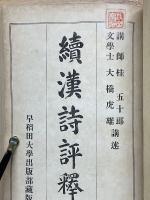 講師桂五十郎講述
文學士大橋虎雄
續漢詩評釋
早稻田大學出版部藏版